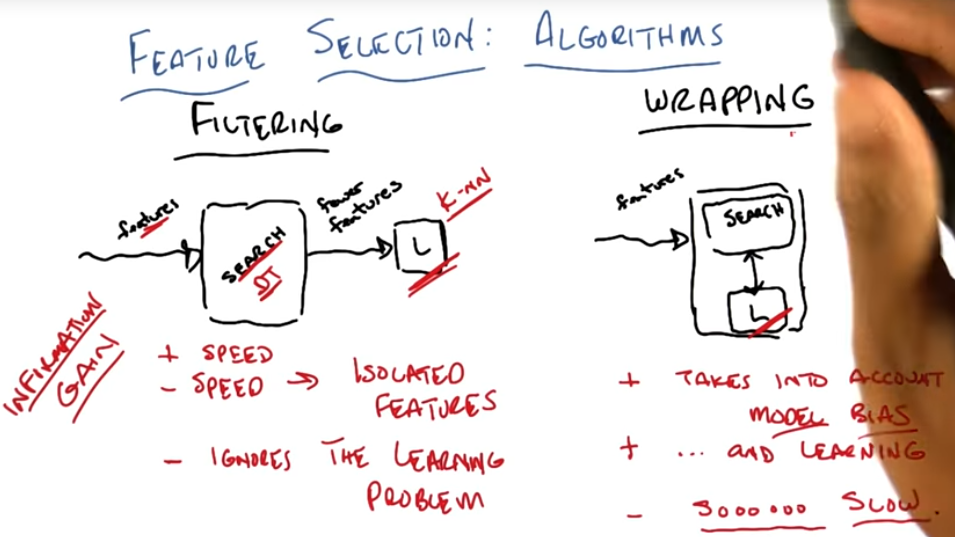 FEATURE SELECTION: ALGORITHMS
FILTERING
features
SEARCH
DT
fewer
features
L
K-NN
INFIRMATION
GAIN
+ SPEED
- SPEED → ISOLATED
FEATURES
- IGNORES THE LEARNING
PROBLEM
WRAPPING
features
SEARCH
L
+ TAKES INTO ACCOUNT
MODEL BIAS
+ ... AND LEARNING
- SOOOOOO SLOW.